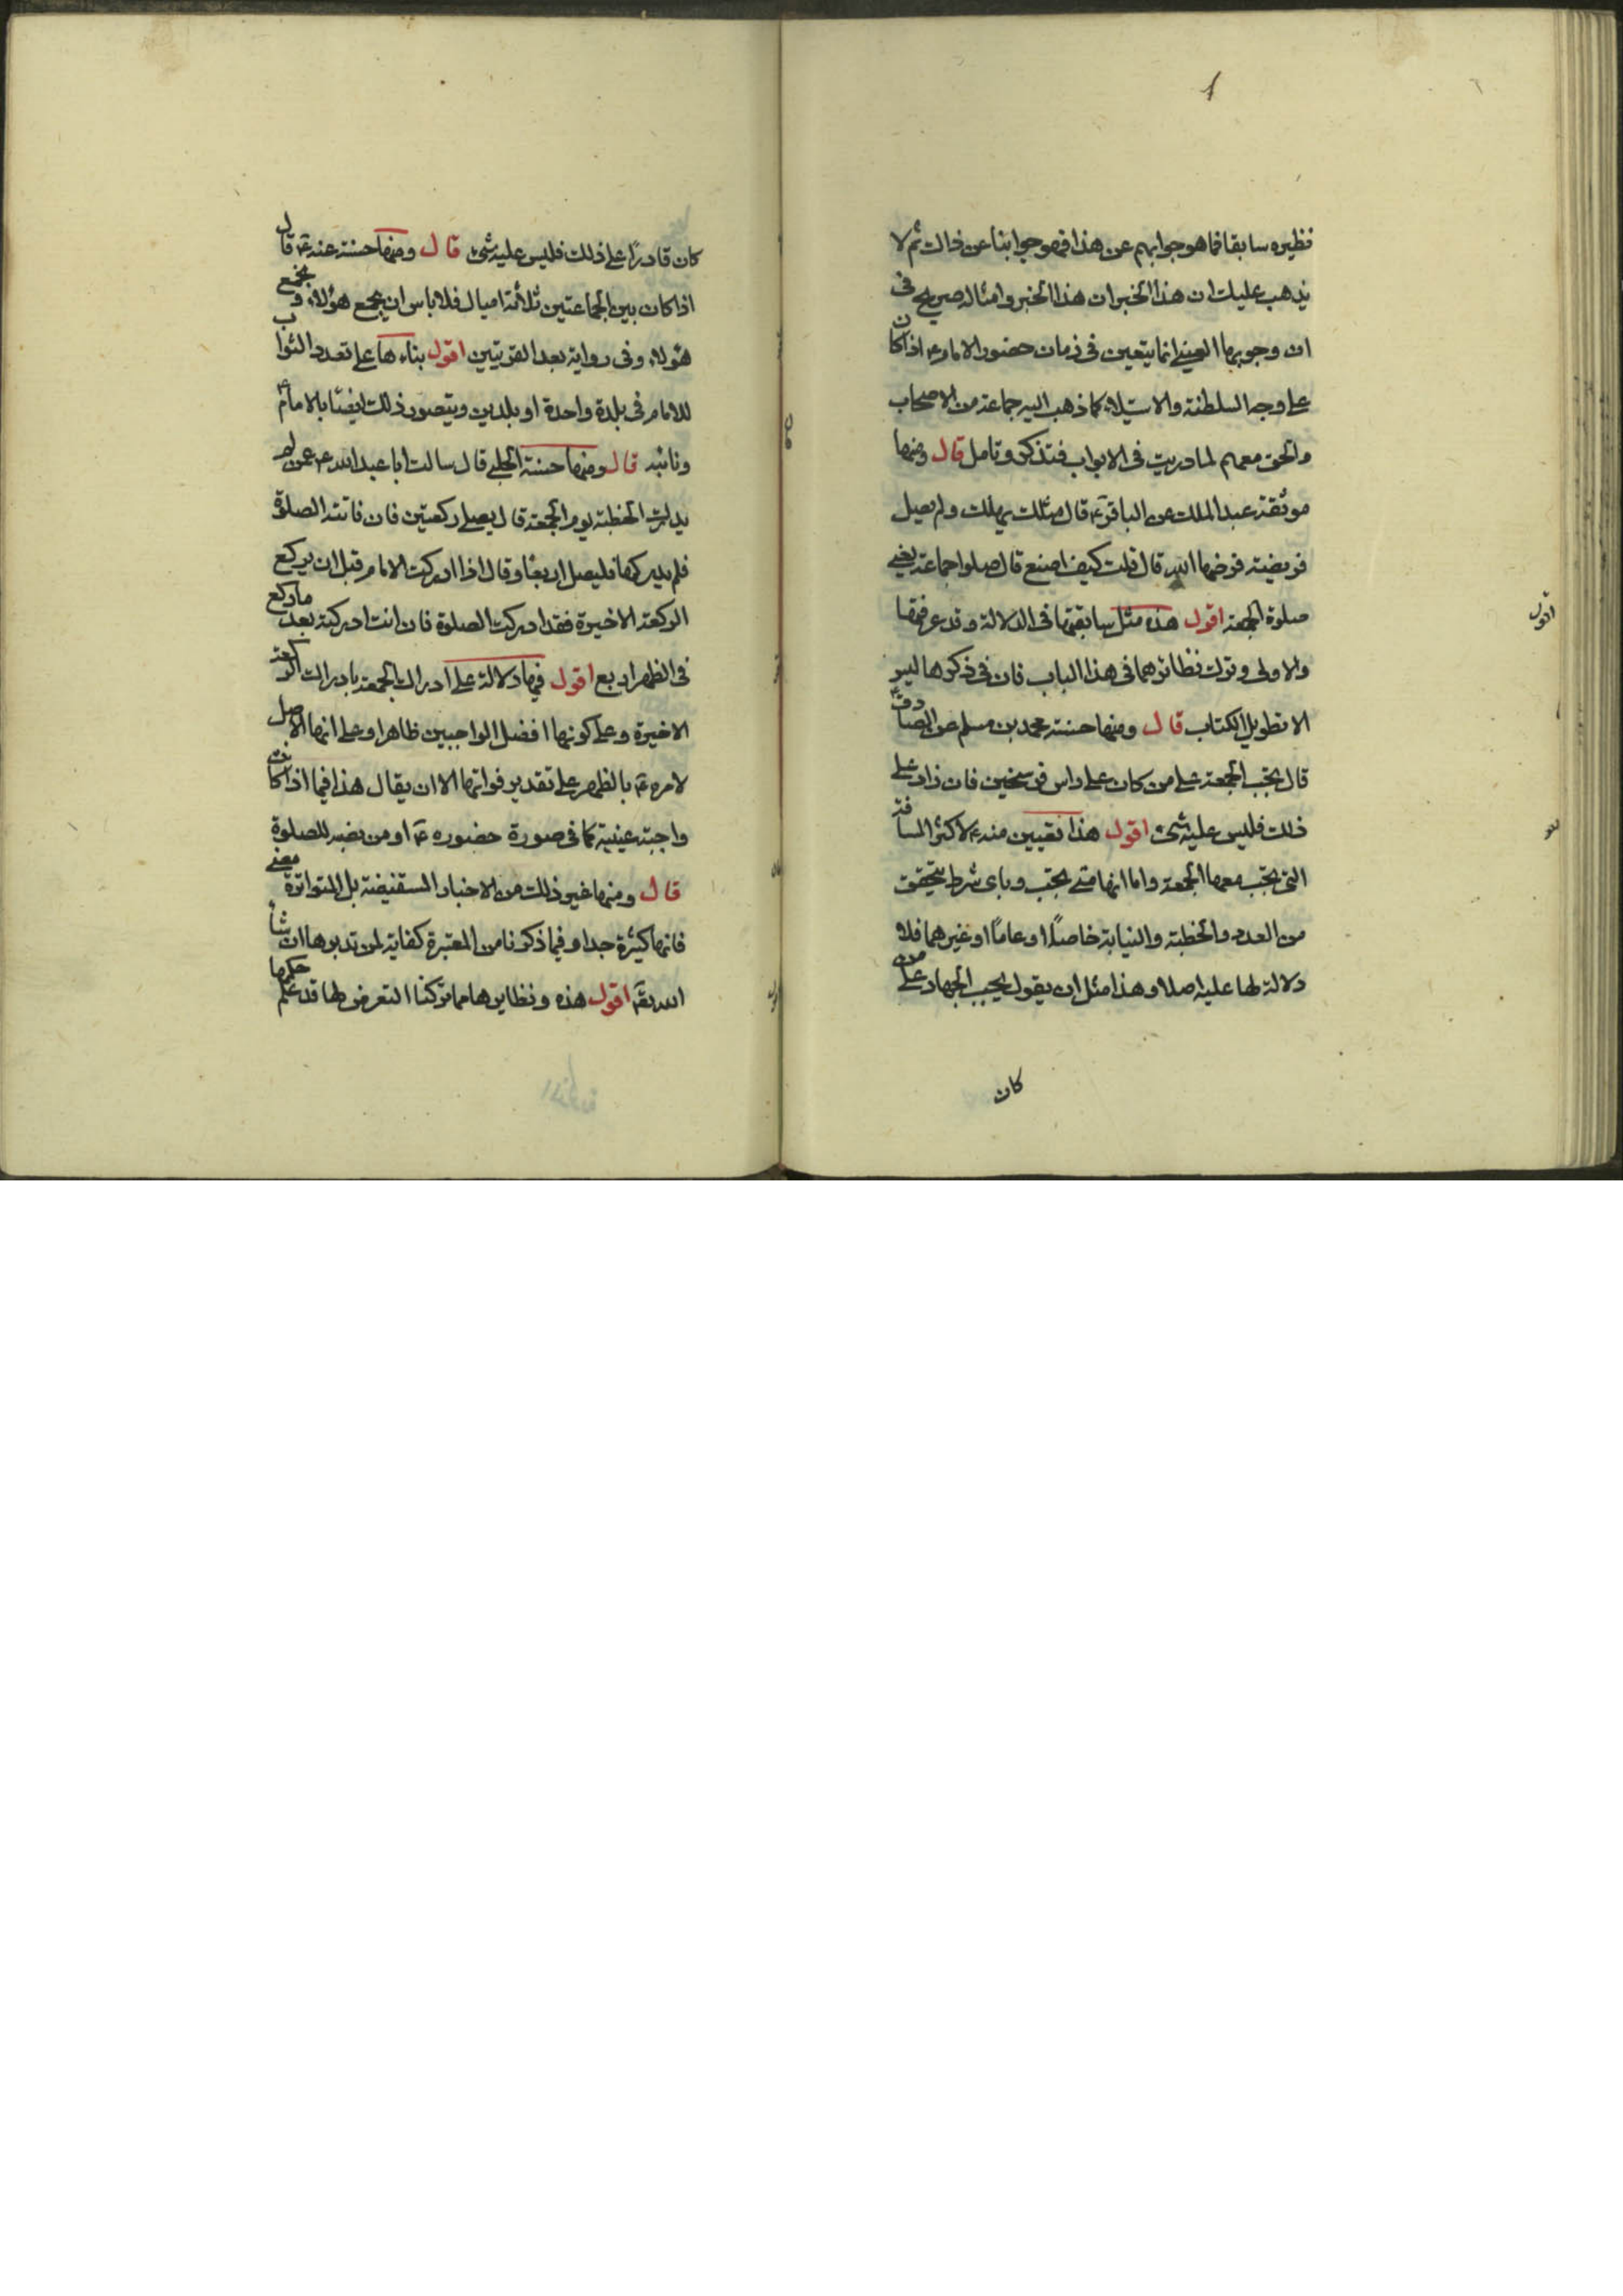 نظيره سابقا فما هو جوابهم عن هذا فهو جوابنا عن ذاك ثم لا
يذهب عليك ان هذا الخبر ان هذا الخبر وامثاله صريح فى
ان وجوبها العينى انما يتعين فى زمان حضور الامام ع اذا كان
على وجه السلطنة والاستيلاء كما ذهب اليه جماعة من الاصحاب
والحق معهم لما دريت فى الابواب فتذكر وتامل قال ومنها
موثقة عبد الملك عن الباقر ع قال مثلك يهلك ولم يصل
فريضة فرضها الله قال قلت كيف اصنع قال صلوا جماعة يعنى
صلوة الجمعة اقول هذه مثل سابقتها فى الدلالة وقد عرفتها
والاولى وترك نظائرهما فى هذا الباب فان فى ذكرها ليس
الا تطويل الكتاب قال ومنها حسنة محمد بن مسلم عن الصادق ع
قال تجب الجمعة على من كان على راس فرسخين فان زاد على
ذلك فليس عليه شئ اقول هذا تعيين منه ع لاكثر المسافة
التى تجب معها الجمعة واما انها متى تجب وباى شرط يتحقق
من العدد والخطبة والنيابة خاصا او عاما او غيرهما فلا
دلالة لها عليه اصلا وهذا مثل ان يقول يجب الجهاد على من
كان
اقول
كان قادرا على ذلك فليس عليه شئ قال ومنها حسنة عنه ع قال
اذا كان بين الجماعتين ثلاثة اميال فلا باس ان يجمع هؤلاء ويجمع
هؤلاء وفى رواية بعد القريتين اقول بناءها على تعدد النواب
للامام فى بلدة واحدة او بلدين ويتصور ذلك ايضا بالامام ع
ونائبه قال ومنها حسنة الحلبى قال سالت ابا عبد الله ع عمن لم
يدرك الخطبة يوم الجمعة قال يصلى ركعتين فان فاتته الصلوة
فلم يدركها فليصل اربعا وقال اذا ادركت الامام قبل ان يركع
الركعة الاخيرة فقد ادركت الصلوة فان انت ادركته بعد ما ركع
فى الظهر اربع اقول فيها دلالة على ادراك الجمعة بادراك الركعة
الاخيرة وعلى كونها افضل الواجبين ظاهرا وعلى انها الاصل
لامره ع بالظهر على تقدير فواتها الا ان يقال هذا فيما اذا كانت
واجبة عينية كما فى صورة حضوره ع او من نصبه للصلوة
قال ومنها غير ذلك من الاخبار المستفيضة بل المتواترة معنى
فانها كثيرة جدا وفيما ذكرنا من المعتبرة كفاية لمن تدبرها ان شاء
الله تعـ اقول هذه ونظايرها مما تركنا التعرض لها قد علم حكمها